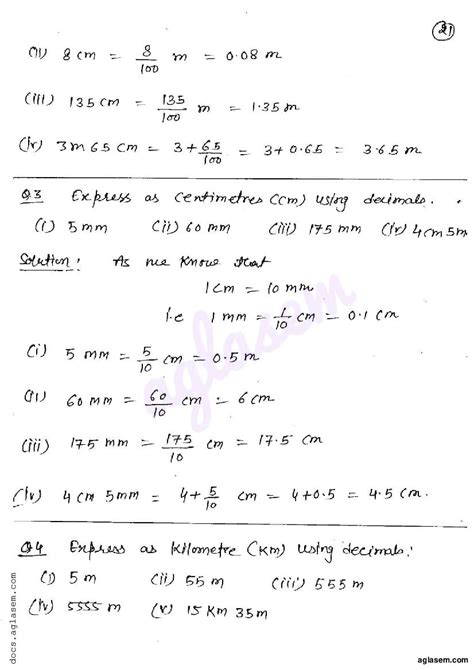 21
(ii) 8 cm = 8/100 m = 0.08 m
(iii) 135 cm = 135/100 m = 1.35 m
(iv) 3m 65 cm = 3+65/100 = 3+0.65 = 3.65 m
Q3 Express as centimetres (cm) using decimals.
(i) 5 mm (ii) 60 mm (iii) 175 mm (iv) 4cm 5m
Solution: As we know that
1 cm = 10 mm
i.e 1 mm = 1/10 cm = 0.1 cm
(i) 5 mm = 5/10 cm = 0.5 m
(ii) 60 mm = 60/10 cm = 6 cm
(iii) 175 mm = 175/10 cm = 17.5 cm
(iv) 4 cm 5mm = 4+5/10 cm = 4+0.5 = 4.5 cm.
Q4 Express as kilometre (km) using decimals:
(i) 5 m (ii) 55 m (iii) 555 m
(iv) 5555 m (v) 15 km 35m
aglasem
docs.aglasem.com
aglasem.com